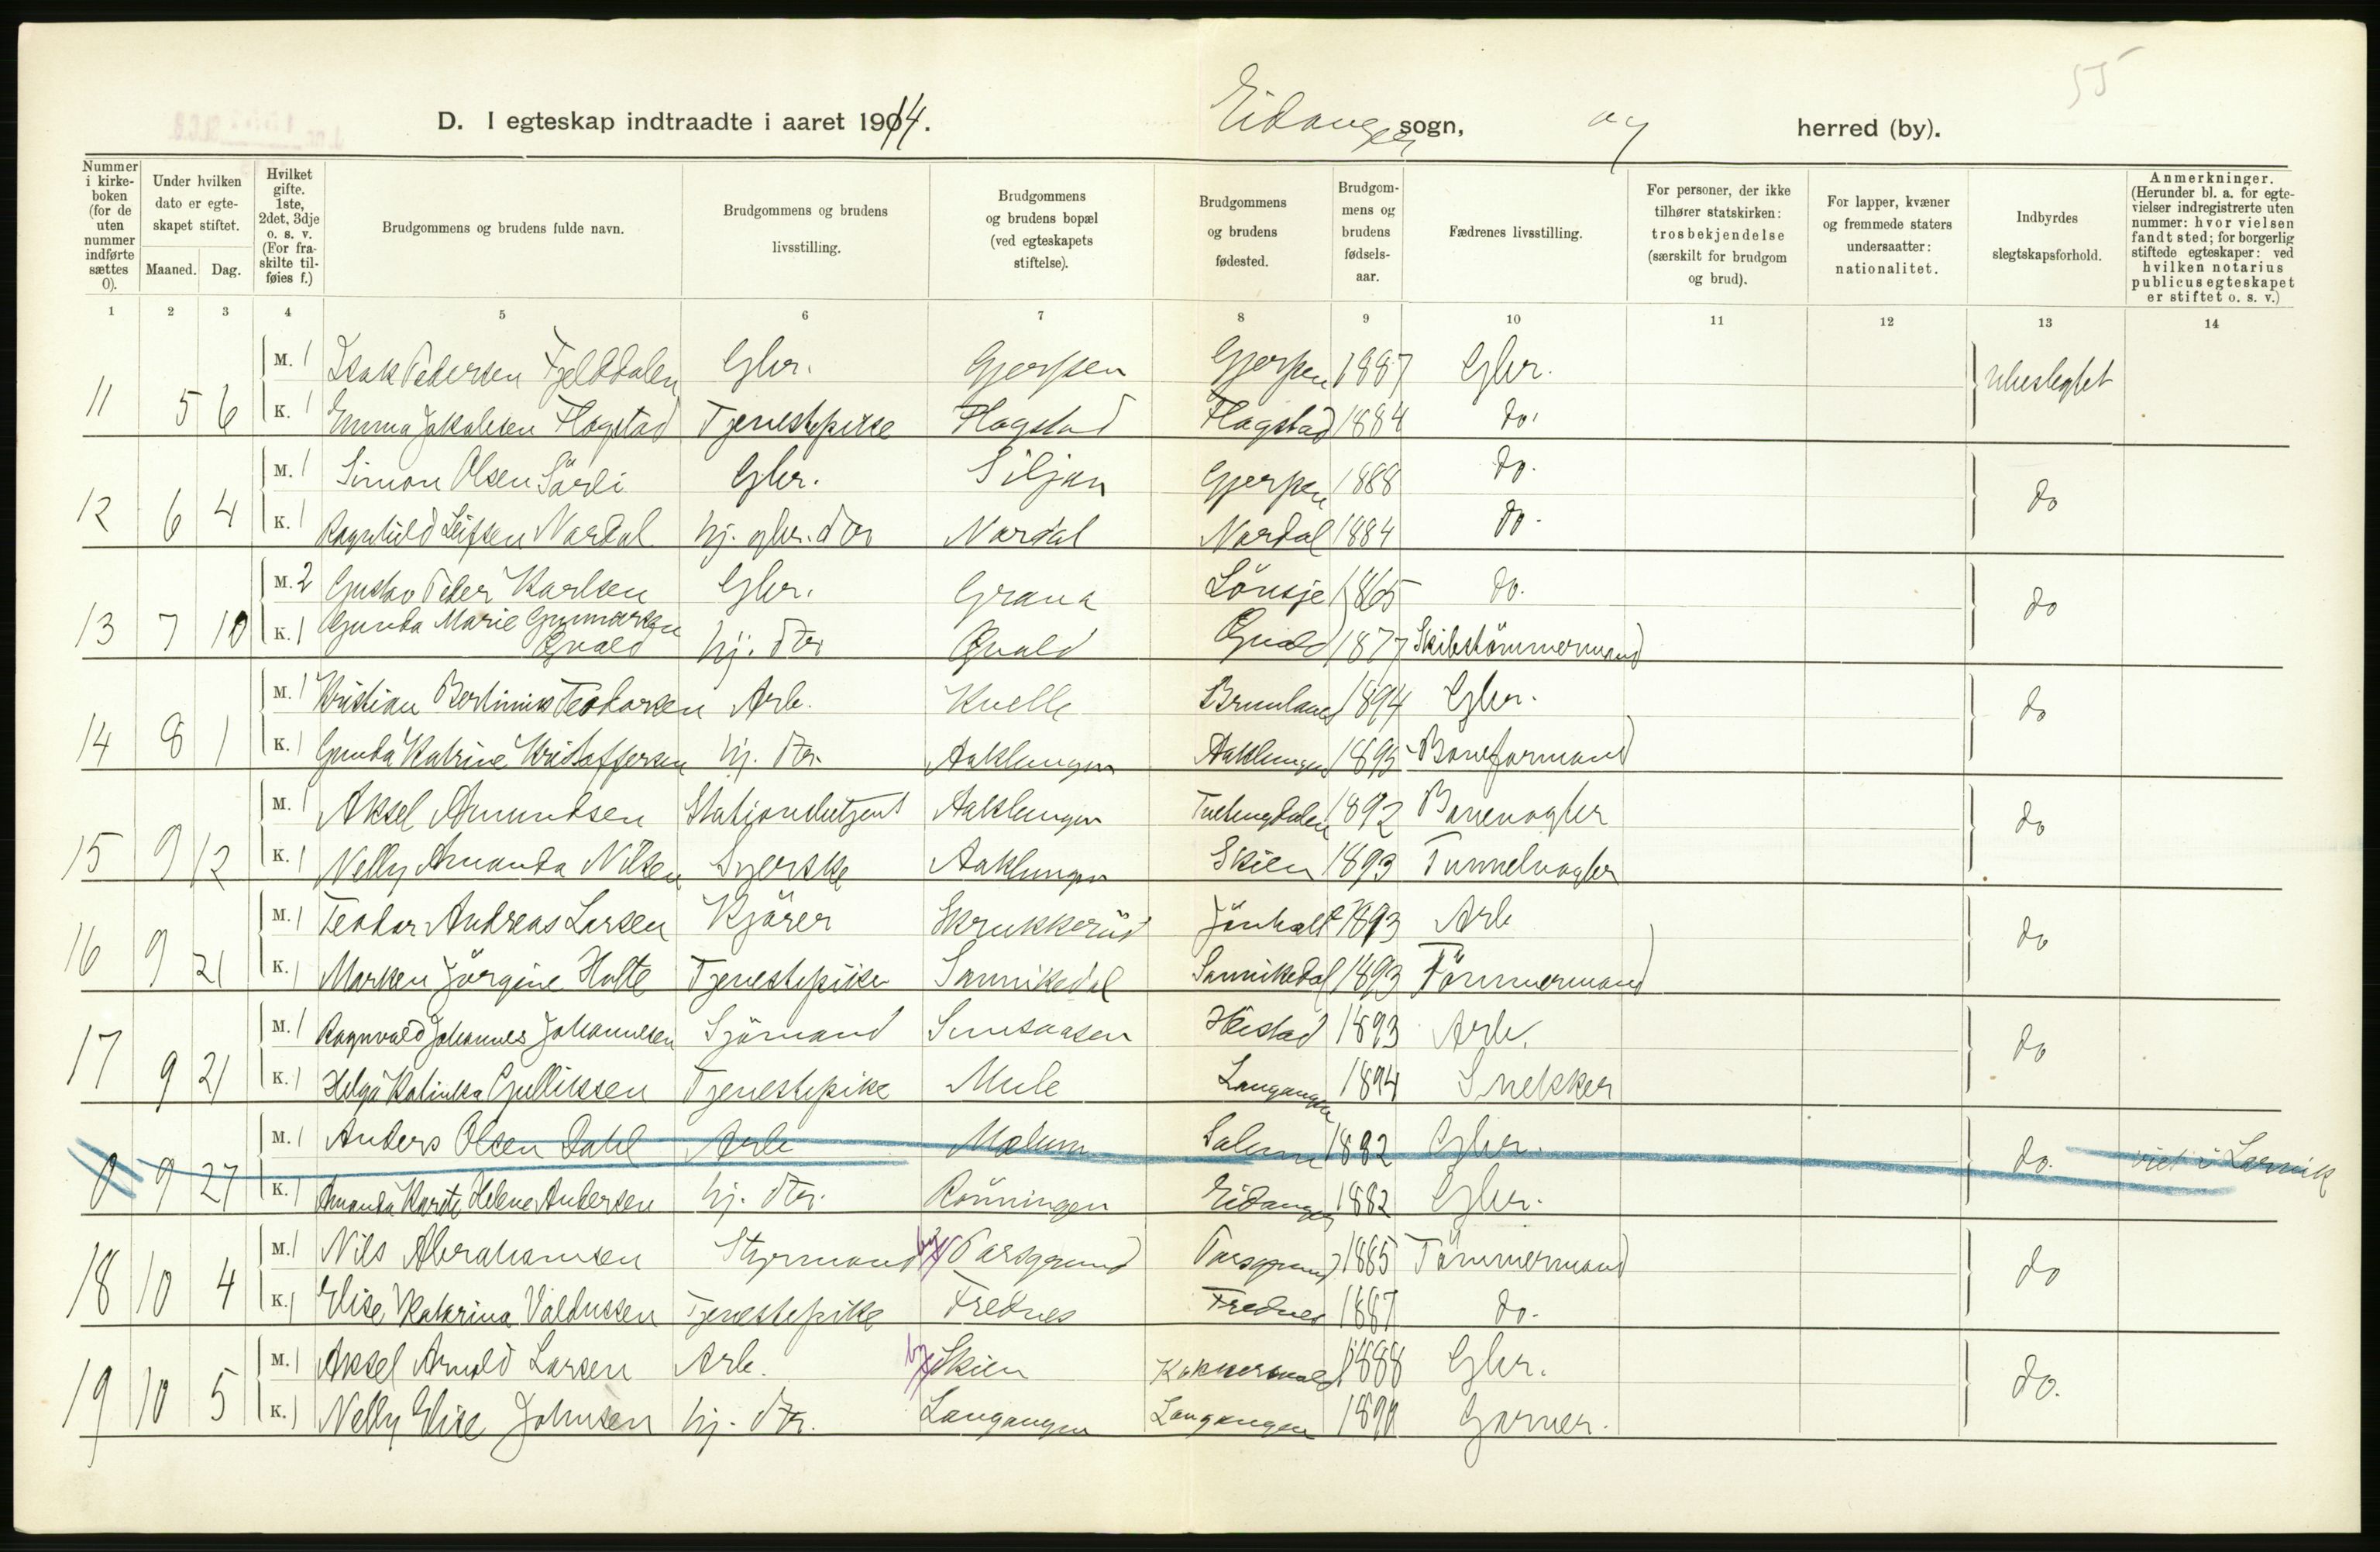 55
D. I egteskap indtraadte i aaret 1914. Eidanger sogn, og herred (by).
Nummer i kirkeboken (for de uten nummer indførte sættes 0).
Under hvilken dato er egteskapet stiftet.
Maaned. Dag.
Hvilket gifte. 1ste, 2det, 3dje o. s. v. (For fraskilte tilføies f.)
Brudgommens og brudens fulde navn.
Brudgommens og brudens livsstilling.
Brudgommens og brudens bopæl (ved egteskapets stiftelse).
Brudgommens og brudens fødested.
Brudgommens og brudens fødselsaar.
Fædrenes livsstilling.
For personer, der ikke tilhører statskirken: trosbekjendelse (særskilt for brudgom og brud).
For lapper, kvæner og fremmede staters undersaatter: nationalitet.
Indbyrdes slegtskapsforhold.
Anmerkninger. (Herunder bl. a. for egtevielser indregistrerte uten nummer: hvor vielsen fandt sted; for borgerlig stiftede egteskaper: ved hvilken notarius publicus egteskapet er stiftet o. s. v.)
1 2 3 4 5 6 7 8 9 10 11 12 13 14
M. 1 Isak Pedersen Fjelddalen Gbr. Gjerpen Gjerpen 1887 Gbr. ubeslegtet
11 5 6 K. 1 Emma Jakobsen Flogstad Tjenestepike Flogstad Flogstad 1884 do.
M. 1 Simon Olsen Sörli Gbr. Siljan Gjerpen 1888 do. do
12 6 4 K. 1 Ragnhild Leifsen Nordal hj. gbr. dtr Nordal Nordal 1884 do.
M. 2 Gustav Peder Karlsen Gbr. Grava 1865 do. do
13 7 10 K. 1 Gunda Marie Gunnarsen Qvald hj. dtr Qvald Qvald 1877 Skibstömmermand
M. 1 Kristian Bertinius Teodorsen Arb. Kvelle Brunlanes 1894 Gbr. do
14 8 1 K. 1 Gunda Katrine Kristoffersen hj. dtr. Aaklungen Aaklungen 1895 Baneformand
M. 1 Aksel Amundsen Stationsbetjent Aaklungen 1892 Banevogter do
15 9 12 K. 1 Nelly Amanda Nilsen Syerske Aaklungen Skien 1893 Tunnelvogter
M. 1 Teodor Andreas Larsen Kjörer Skrukkeröd Jönholt 1893 Arb do
16 9 21 K. 1 Maren Jörgine Holte Tjenestepike Sannikedal Sannikedal 1893 Tömmermand
M. 1 Ragnvald Johannes Johannesen Sjömand Heistad 1893 Arb. do
17 9 21 K. 1 Helga Katinka Gulliksen Tjenestepike Mule Langangen 1894 Snekker
M. 1 Anders Olsen Dahl Arb Melum Solum 1882 Gbr. do. viet i Larvik
0 9 27 K. 1 Amanda Karite Helene Andersen hj. dtr. Rönningen Eidanger 1882 Gbr.
M. 1 Nils Abrahamsen Styrmand by Porsgrund Porsgrund 1885 Tömmermand do
18 10 4 K. 1 Elise Katarina Valdussen Tjenestepike Frednes Frednes 1887 do.
M. 1 Aksel Arnold Larsen Arb. by Skien Kokkersvold 1888 Gbr. do.
19 10 5 K. 1 Nelly Elise Johnsen hj. dtr. Langangen Langangen 1890 Garver.